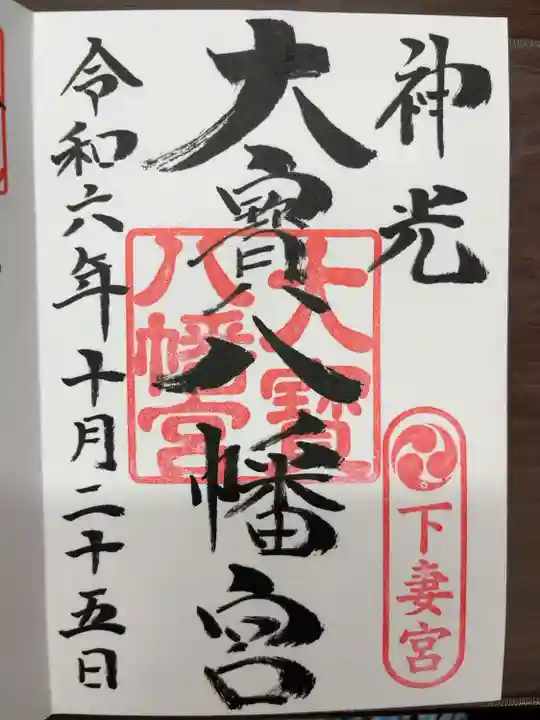 神光
下妻宮
大寶八幡宮
大寶
八幡宮
令和六年十月二十五日